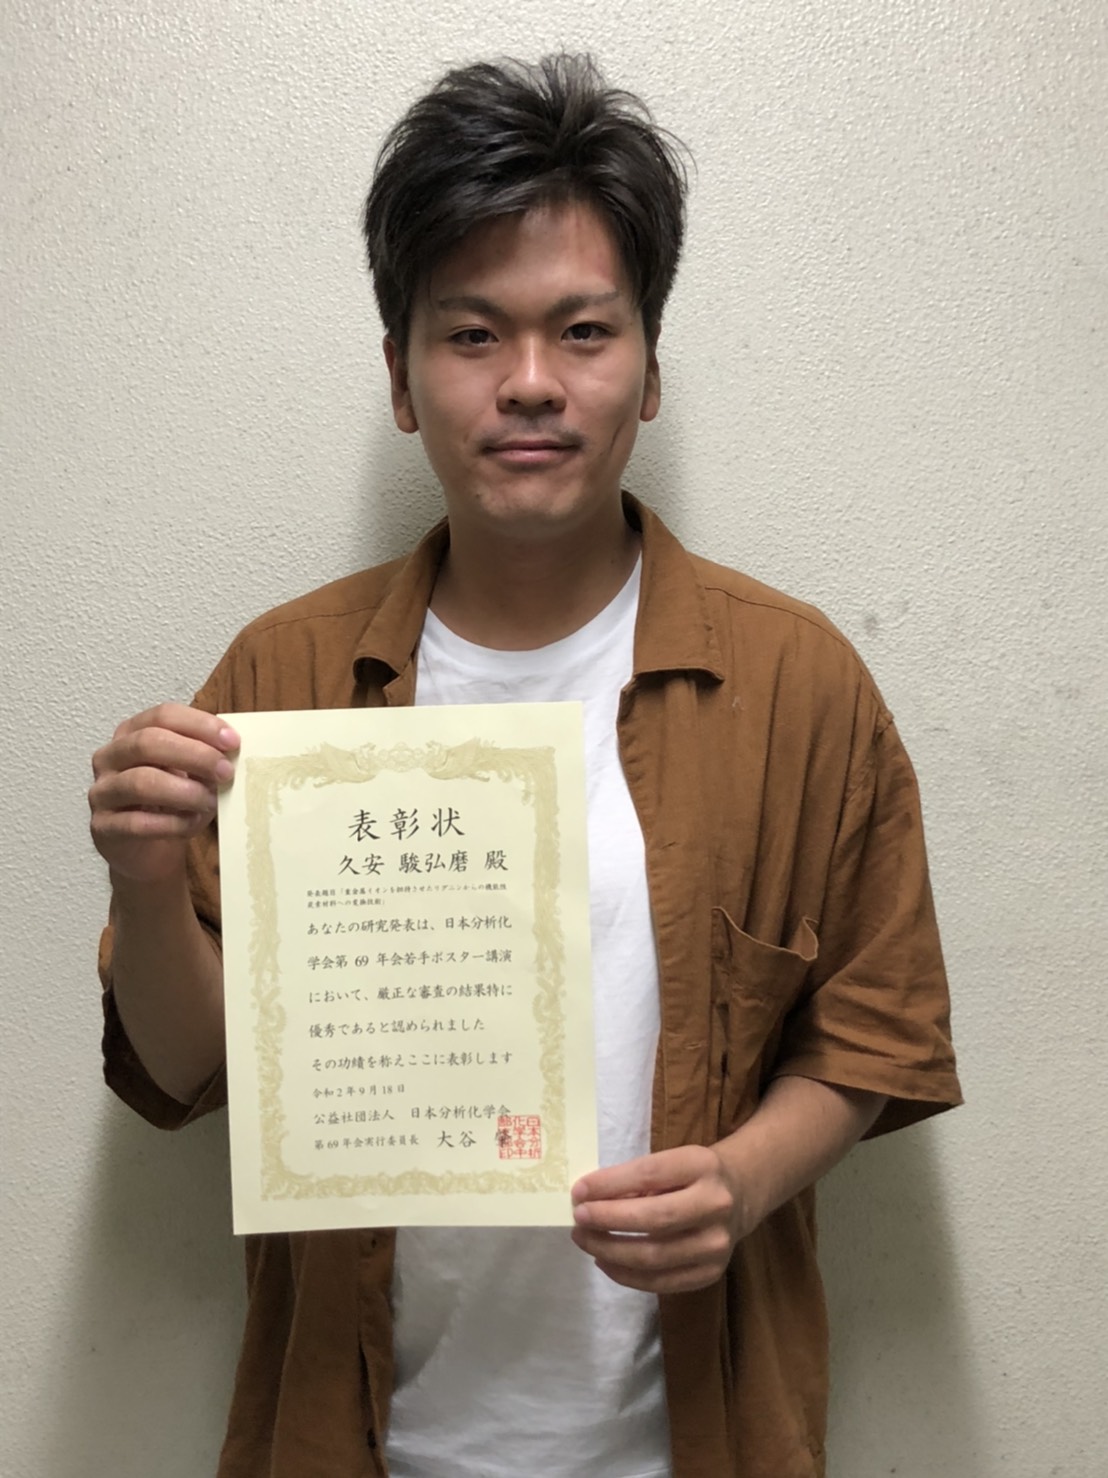 表彰状
久安 駿弘磨 殿
発表題目「重金属イオンを担持させたリグニンからの機能性
炭素材料への変換技術」
あなたの研究発表は、日本分析化
学会第 69 年会若手ポスター講演
において、厳正な審査の結果特に
優秀であると認められました
その功績を称えここに表彰します
令和2年9月18日
公益社団法人 日本分析化学会
第69年会実行委員長 大谷 肇